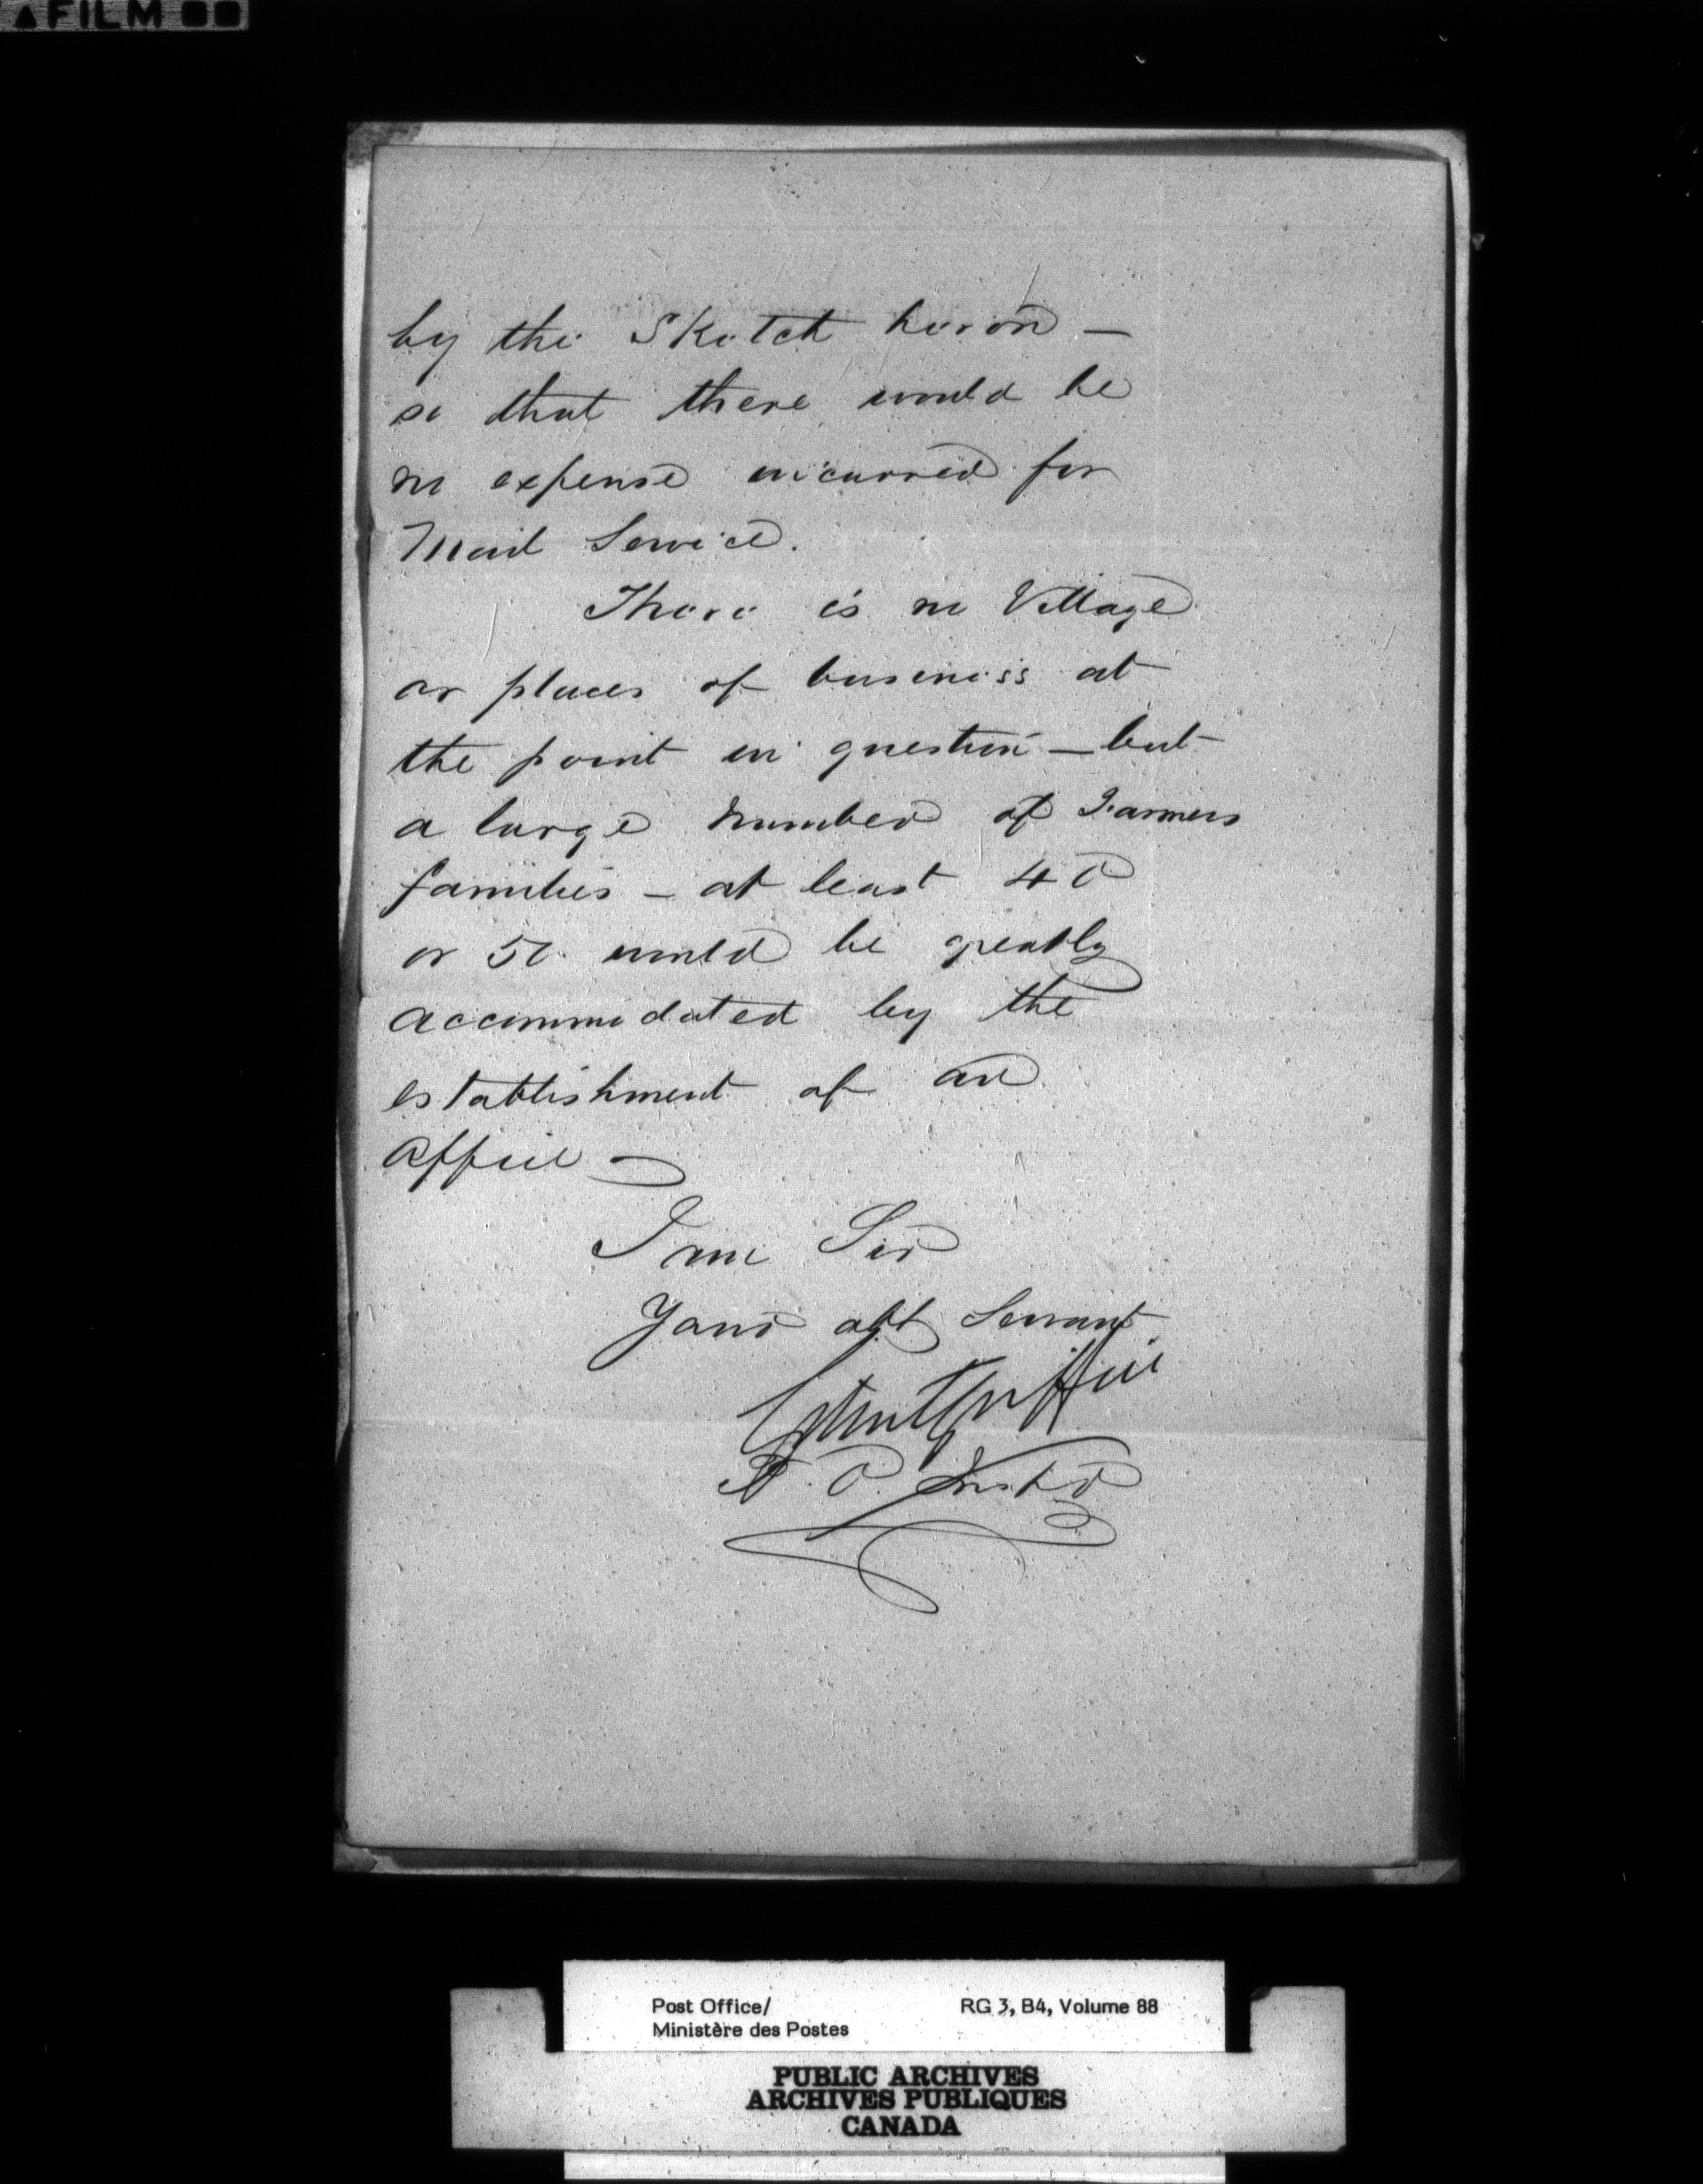 AFILM
by the Sketch hereon —
so that there would be
no expense incurred for
Mail Service.
There is no Village
or places of business at
the point in question — but
a large number of Farmers
families — at least 40
or 50 would be greatly
accommodated by the
establishment of an
Office —
I am Sir
Your obt Servant
Griffin
P. O. Inspr
Post Office/ RG 3, B4, Volume 88
Ministère des Postes
PUBLIC ARCHIVES
ARCHIVES PUBLIQUES
CANADA